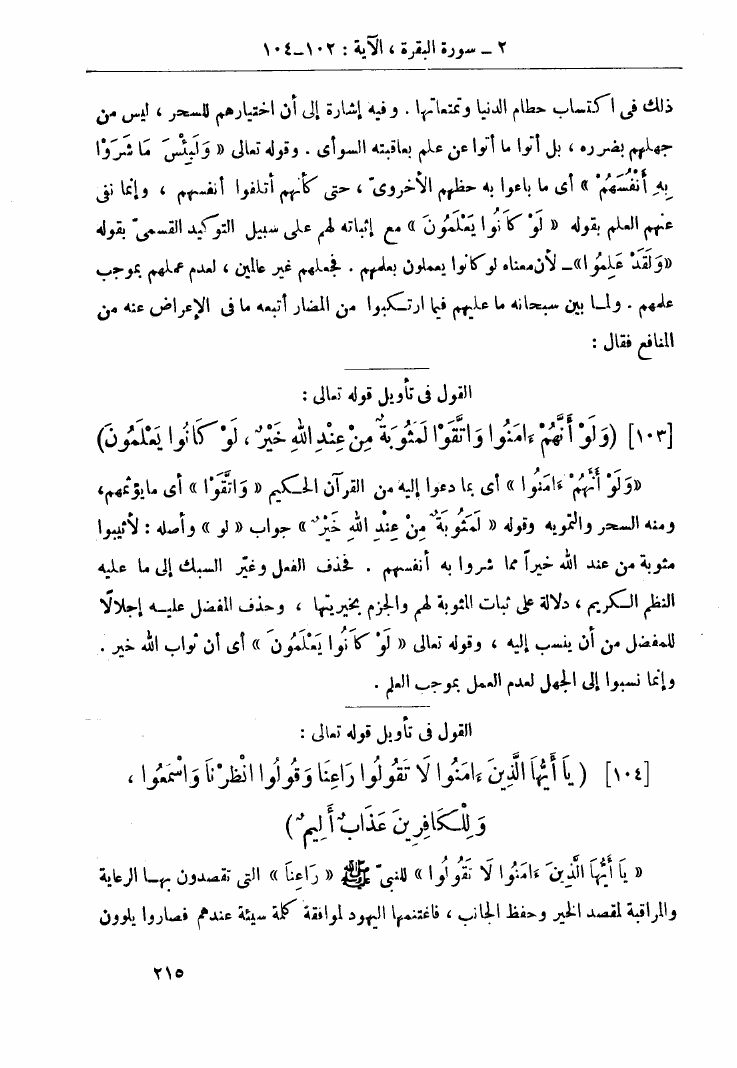 ٢ ـ سورة البقرة ، الآية : ١٠٢-١٠٤
ذلك فى اكتساب حطام الدنيا وتمتعاتها . وفيه إشارة إلى أن اختيارهم للسحر ، ليس من
جهلهم بضرره ، بل أتوا ما أتوا عن علم بعاقبته السوأى . وقوله تعالى « وَلَبِئْسَ مَا شَرَوْا
بِهِ أَنْفُسَهُمْ » أى ما باعوا به حظهم الأخروىّ ، حتى كأنهم أتلفوا أنفسهم ، وإنما نفى
عنهم العلم بقوله « لَوْ كَانُوا يَعْلَمُونَ » مع إثباته لهم على سبيل التوكيد القسمىّ بقوله
«وَلَقَدْ عَلِمُوا»ـ لأن معناه لو كانوا يعملون بعلمهم . فجعلهم غير عالمين ، لعدم عملهم بموجب
علمهم . ولما بين سبحانه ما عليهم فيما ارتكبوا من المضار أتبعه ما فى الإعراض عنه من
المنافع فقال :
القول فى تأويل قوله تعالى :
[١٠٣] (وَلَوْ أَنَّهُمْ ءَامَنُوا وَاتَّقَوْا لَمَثُوبَةٌ مِنْ عِنْدِ اللهِ خَيْرٌ ، لَوْ كَانُوا يَعْلَمُونَ)
«وَلَوْ أَنَّهُمْ ءَامَنُوا » أى بما دعوا إليه من القرآن الحكيم « وَاتَّقَوْا » أى ما يؤثمهم،
ومنه السحر والتمويه وقوله « لَمَثُوبَةٌ مِنْ عِنْدِ اللهِ خَيْرٌ » جواب « لو » وأصله : لأثيبوا
مثوبة من عند الله خيراً مما شروا به أنفسهم . فحذف الفعل وغيّر السبك إلى ما عليه
النظم الكريم ، دلالة على ثبات المثوبة لهم والجزم بخيريتها ، وحذف المفضل عليه إجلالًا
للمفضل من أن ينسب إليه ، وقوله تعالى « لَوْ كَانُوا يَعْلَمُونَ » أى أن ثواب الله خير .
وإنما نسبوا إلى الجهل لعدم العمل بموجب العلم .
القول فى تأويل قوله تعالى :
[١٠٤] ( يَا أَيُّهَا الَّذِينَ ءَامَنُوا لَا تَقُولُوا رَاعِنَا وَقُولُوا انْظُرْنَا وَاسْمَعُوا ،
وَلِلْكَافِرِينَ عَذَابٌ أَلِيمٌ )
« يَا أَيُّهَا الَّذِينَ ءَامَنُوا لَا تَقُولُوا » للنبىّ ﷺ « رَاعِنَا » التى تقصدون بها الرعاية
والمراقبة لمقصد الخير وحفظ الجانب ، فاغتنمها اليهود لموافقة كلمة سيئة عندهم فصاروا يلوون
٢١٥